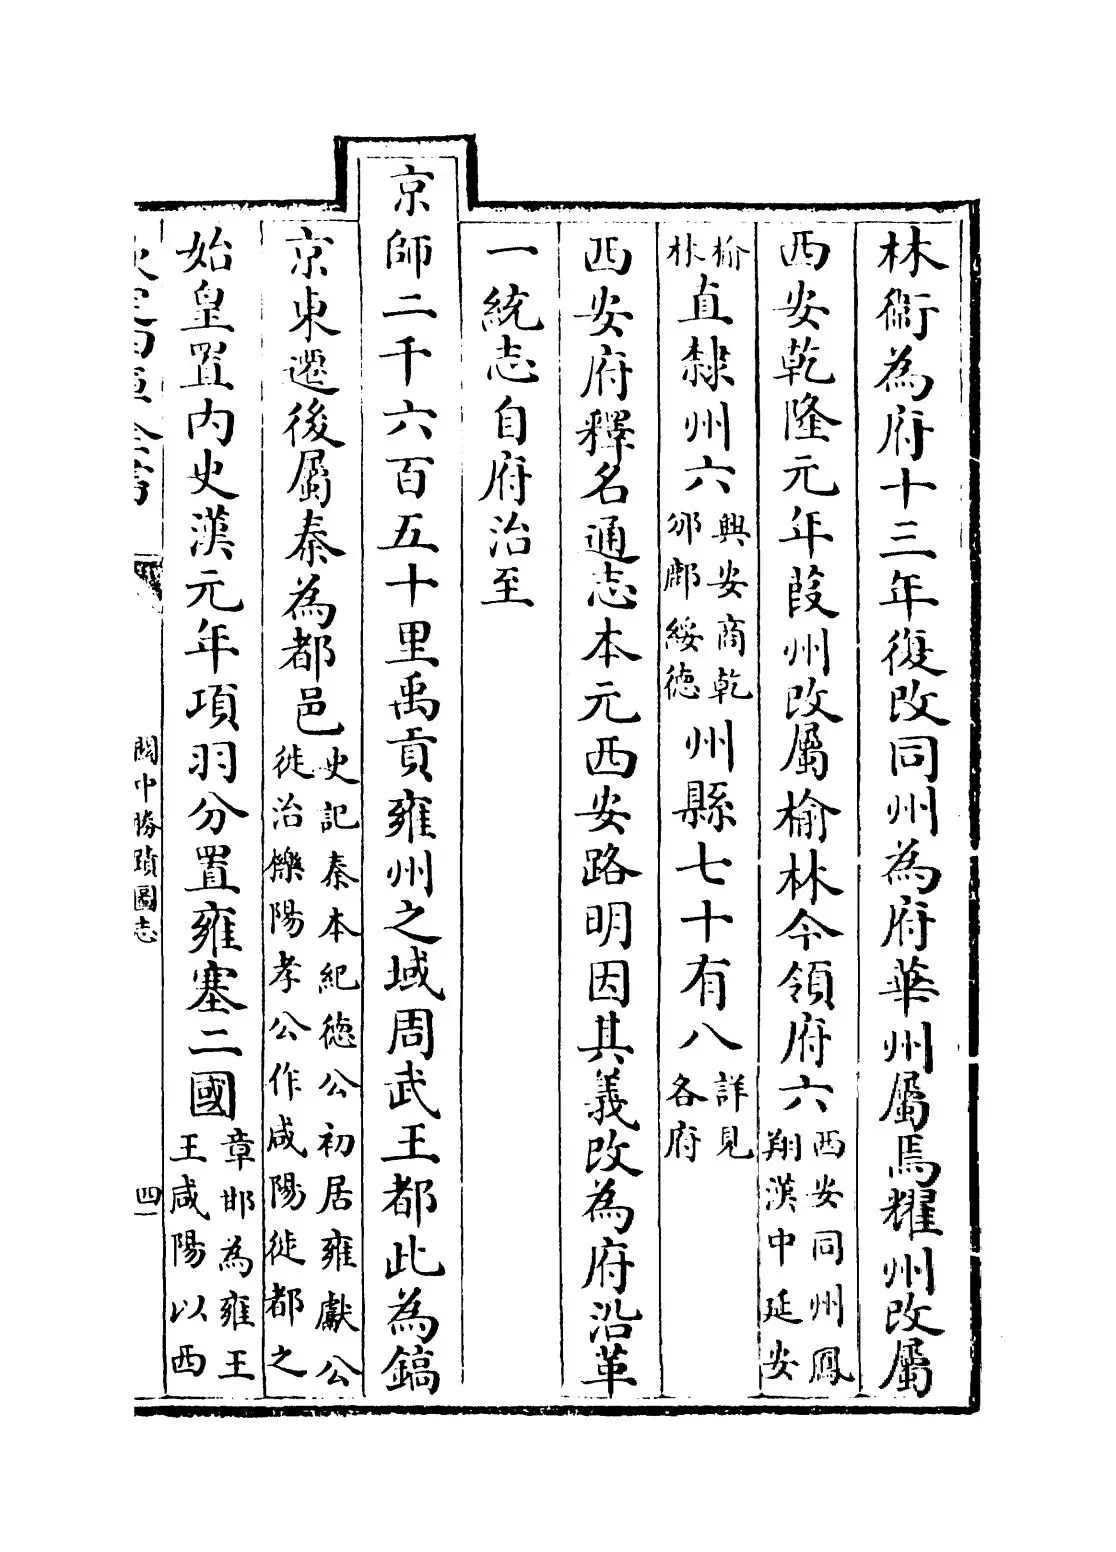 林衞為府十三年復改同州為府華州屬焉耀州改屬
西安乾隆元年葭州改屬榆林今領府六西安同州鳳翔漢中延安
榆林直隸州六興安商乾邠鄜綏德州縣七十有八詳見各府
西安府釋名通志本元西安路明因其義改為府沿革
一統志自府治至
京師二千六百五十里禹貢雍州之域周武王都此為鎬
京東遷後屬秦為都邑史記秦本紀德公初居雍獻公徙治櫟陽孝公作咸陽徙都之
始皇置內史漢元年項羽分置雍塞二國章邯為雍王王咸陽以西
欽定四庫全書
關中勝蹟圖志
四